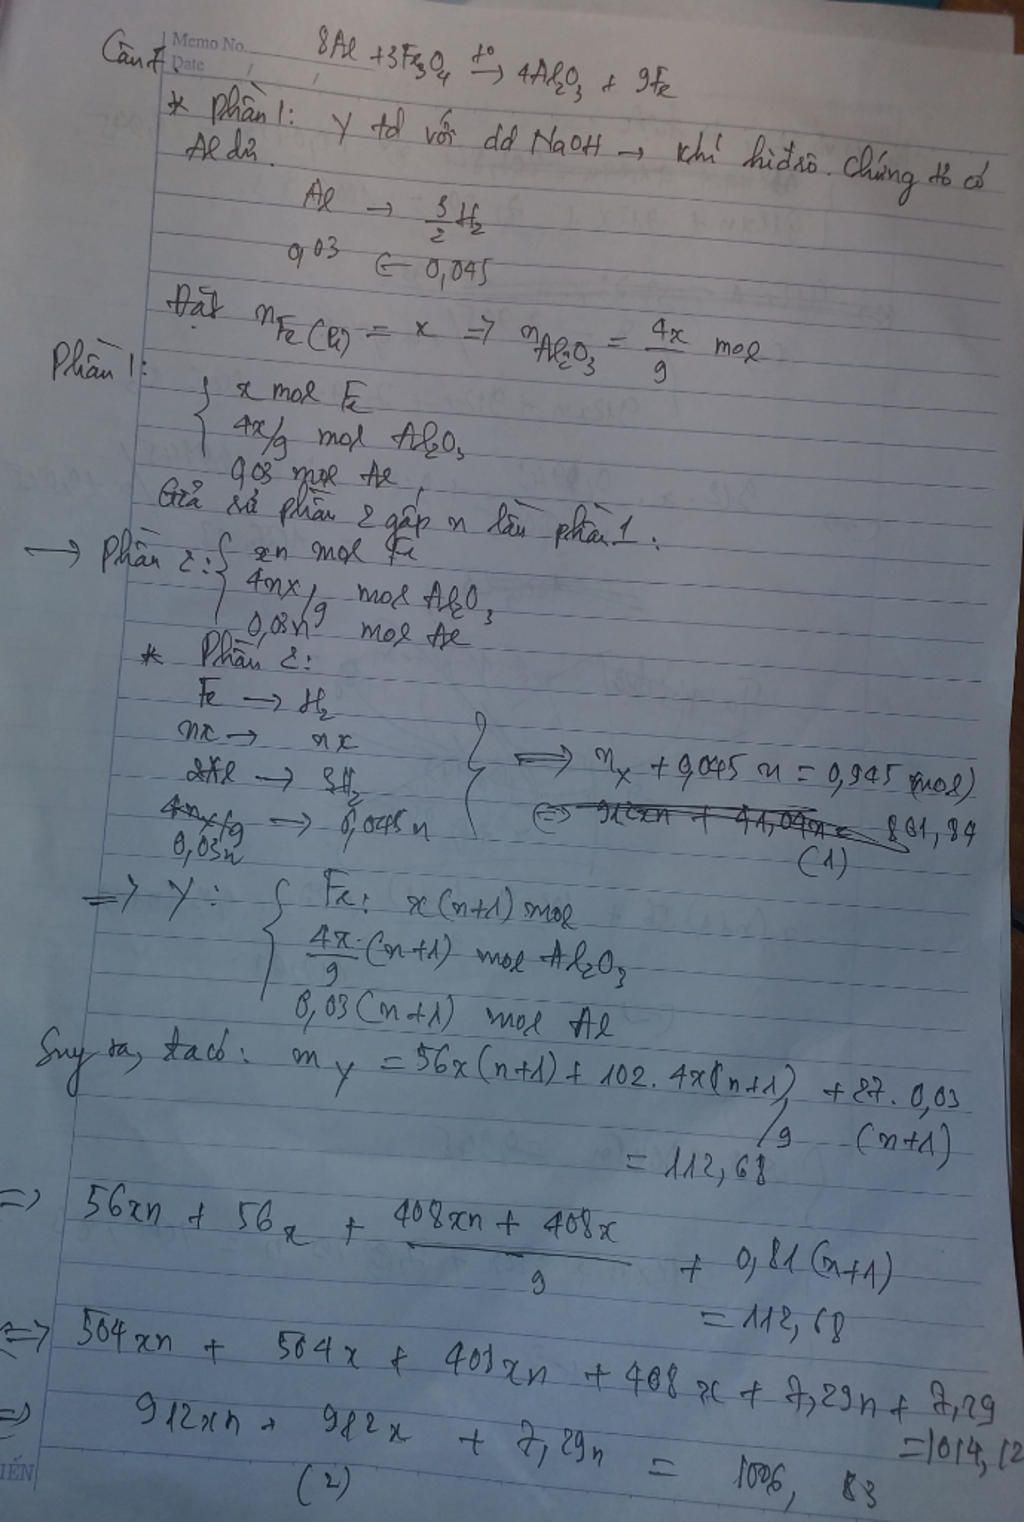 Memo No.
Date / /
Câu 7.
8Al + 3Fe₃O₄ →(t°) 4Al₂O₃ + 9Fe
* Phần 1: Y td với dd NaOH → khí hiđrô. Chứng tỏ có
Al dư.
Al → 3/2 H₂
0,03 ← 0,045
Đặt n Fe = x => n Al₂O₃ = 4x/9 mol
Phần 1:
{ x mol Fe
4x/9 mol Al₂O₃
0,03 mol Al
Giả sử phần 2 gấp n lần phần 1:
→ Phần 2: { xn mol Fe
4nx/9 mol Al₂O₃
0,03n mol Al
* Phần 2:
Fe → H₂
nx → nx
2Al → 3H₂
0,03n → 0,045n
} => nx + 0,045n = 0,945 (mol)
861,84
(1)
=> Y: { Fe: x(n+1) mol
4x/9 . (n+1) mol Al₂O₃
0,03(n+1) mol Al
Suy ra, ta có: m Y = 56x(n+1) + 102. 4x(n+1)/9 + 27. 0,03
(n+1)
= 112,68
=> 56xn + 56x + (408xn + 408x)/9 + 0,81(n+1)
= 112,68
<=> 504xn + 504x + 408xn + 408x + 7,29n + 7,29
= 1014,12
=> 912xn + 912x + 7,29n = 1006,83
(2)
IẾN